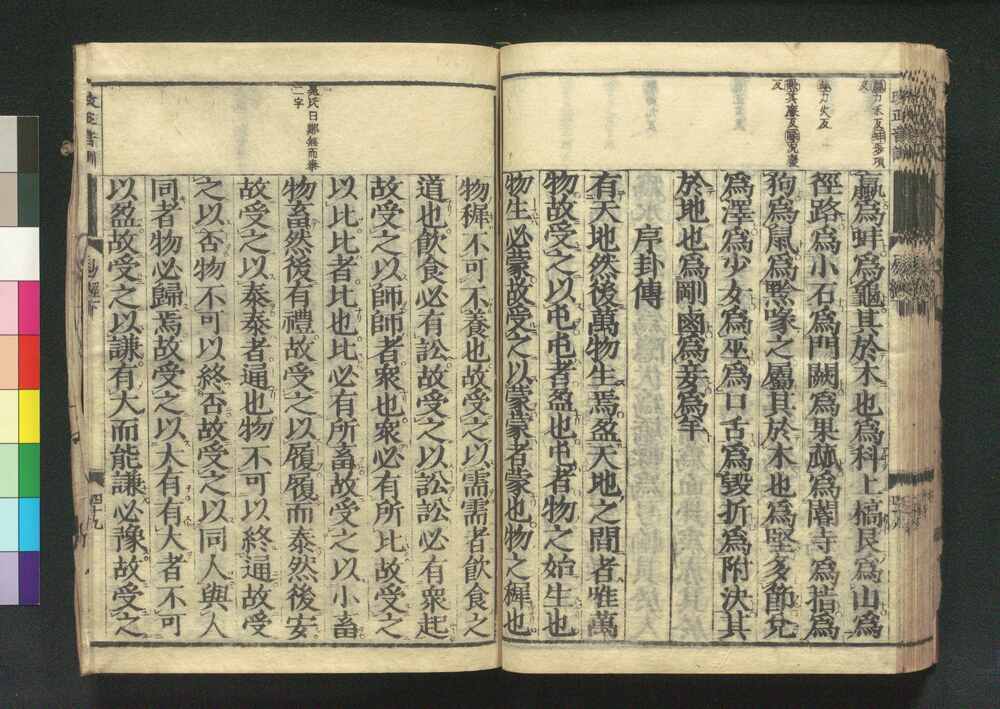 蠃爲蚌爲龜其於木也爲科上槁艮爲山爲
徑路爲小石爲門闕爲果蓏爲閽寺爲指爲
狗爲鼠爲黔喙之屬其於木也爲堅多節兌
爲澤爲少女爲巫爲口舌爲毀折爲附決其
於地也爲剛鹵爲妾爲羊
序卦傳
有天地然後萬物生焉盈天地之間者唯萬
物故受之以屯屯者盈也屯者物之始生也
物生必蒙故受之以蒙蒙者蒙也物之穉也
吳氏曰鄭無而泰
二字
物穉不可不養也故受之以需需者飲食之
道也飲食必有訟故受之以訟訟必有衆起
故受之以師師者衆也衆必有所比故受之
以比比者比也比必有所畜故受之以小畜
物畜然後有禮故受之以履履而泰然後安
故受之以泰泰者通也物不可以終通故受
之以否物不可以終否故受之以同人與人
同者物必歸焉故受之以大有有大者不可
以盈故受之以謙有大而能謙必豫故受之
改正音訓
易經下
四十九